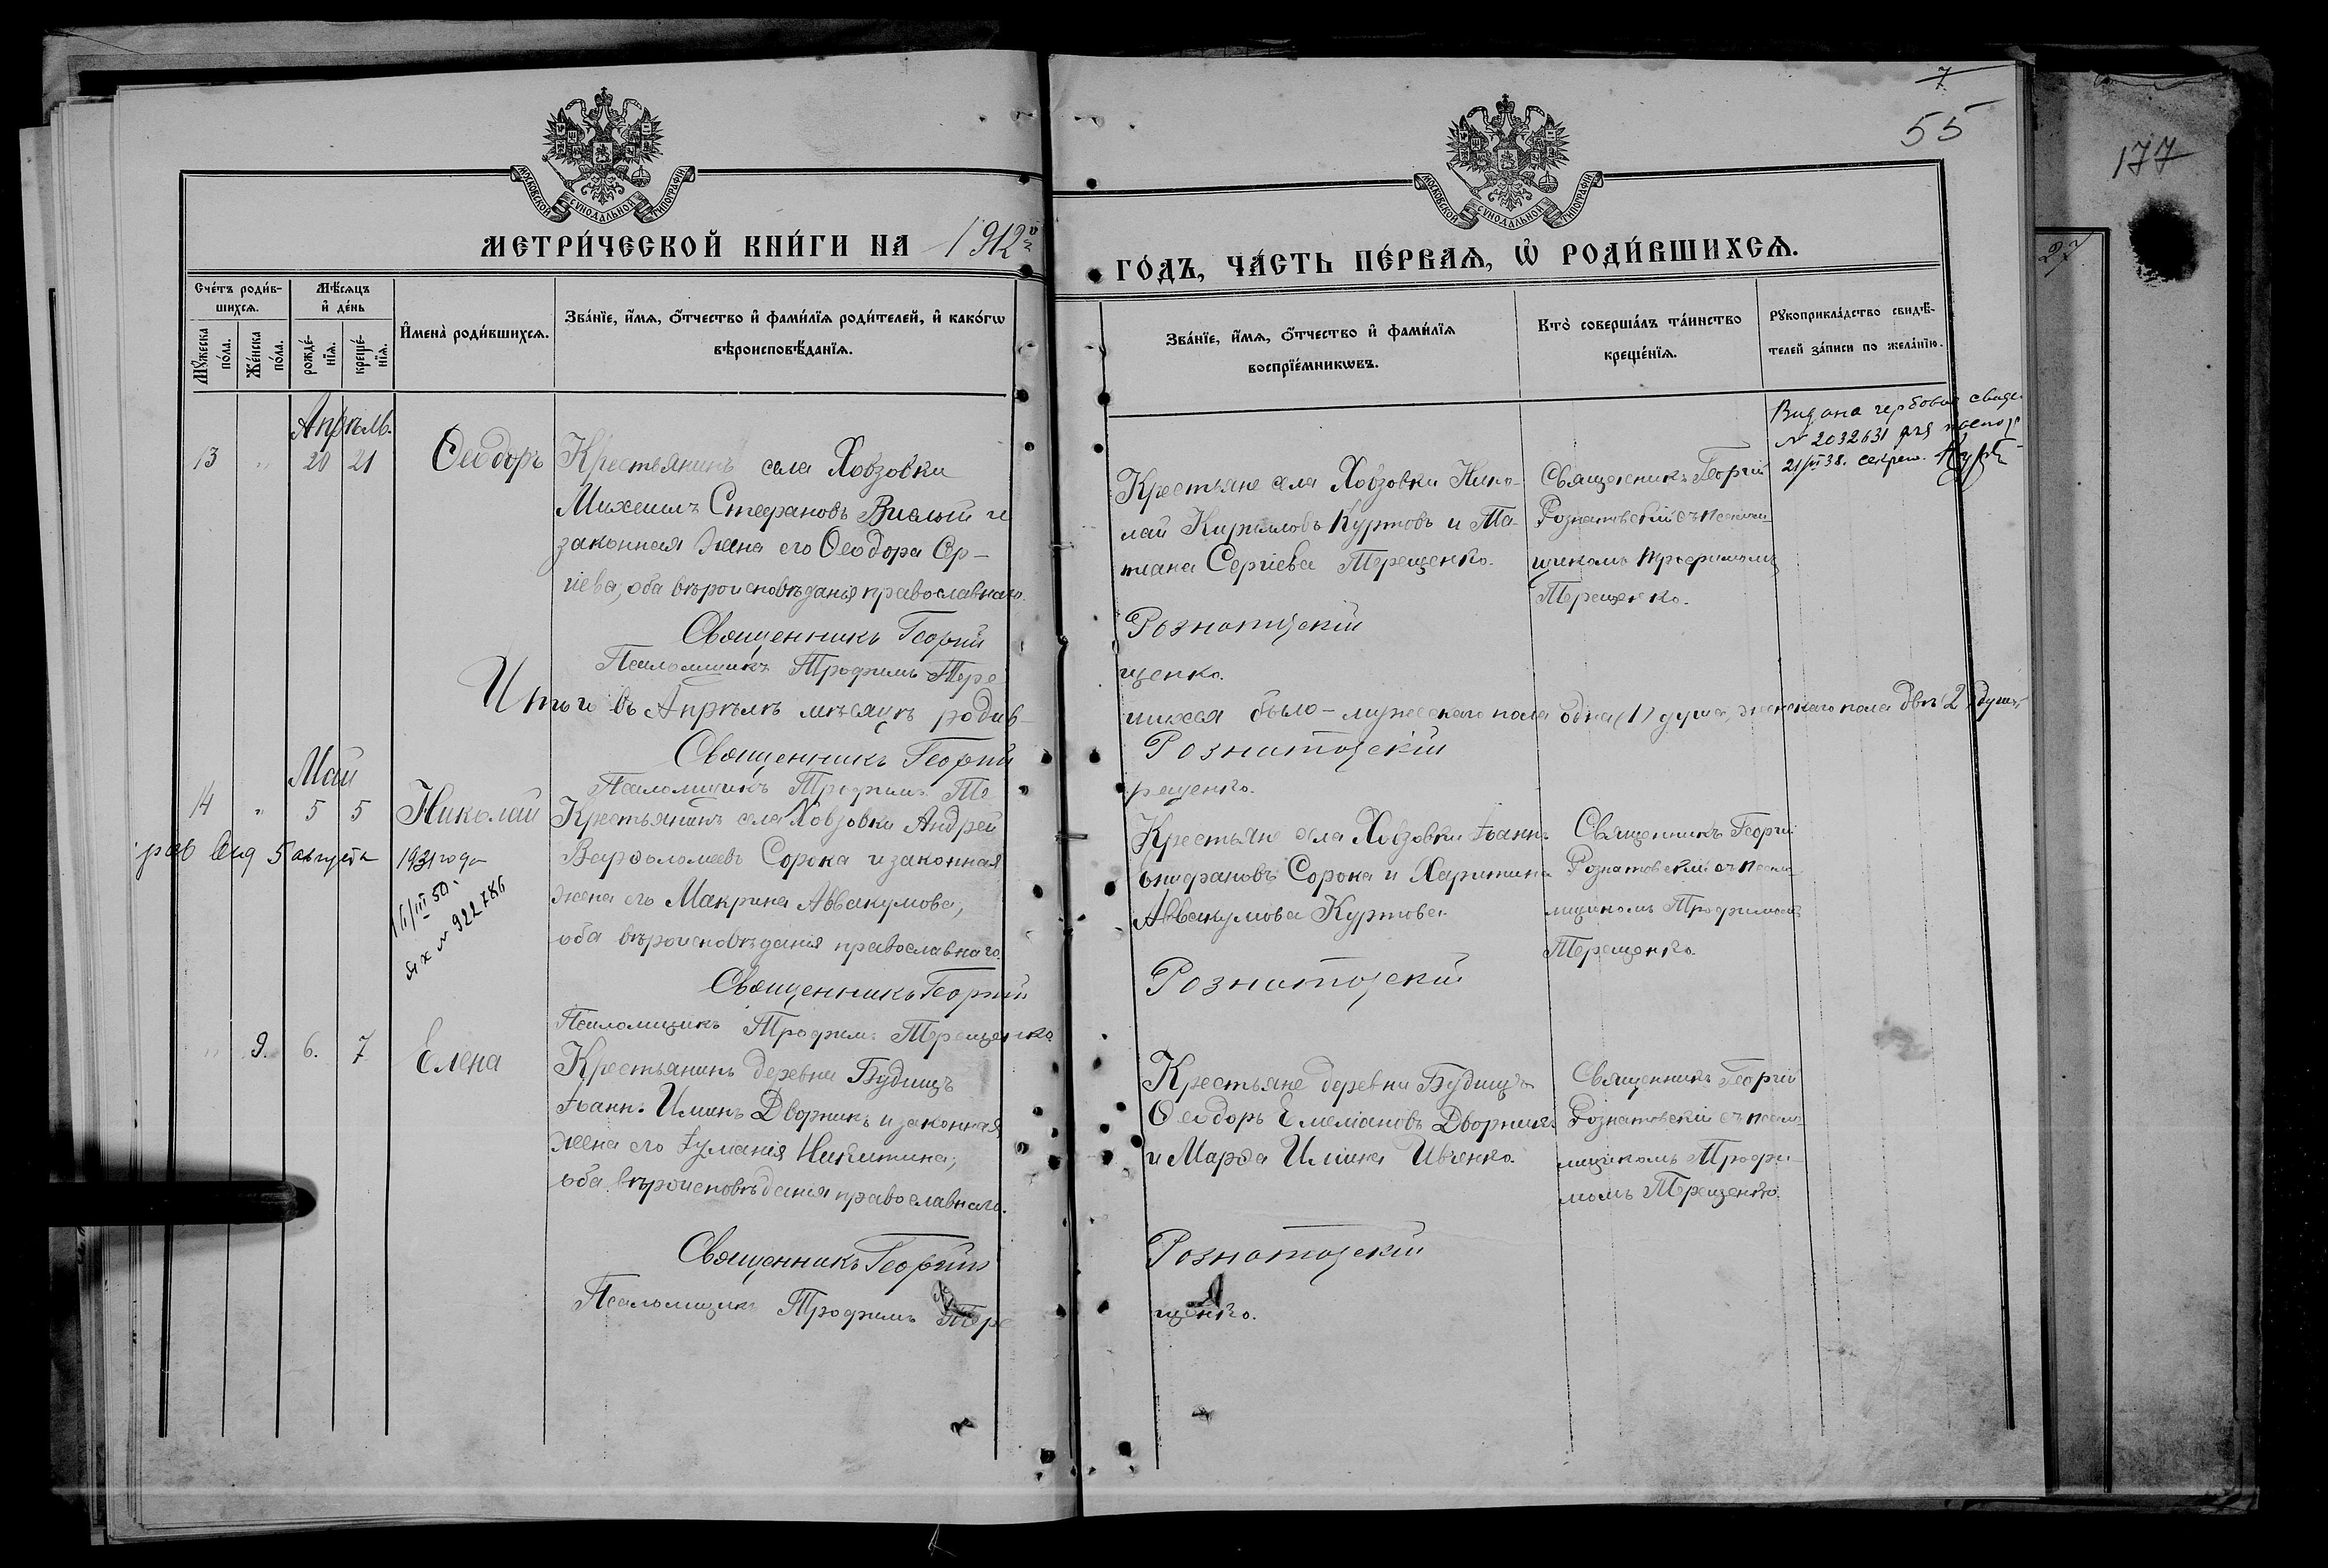 7
55
177
27
МОСКОВСКОЙ СѴНОДАЛЬНОЙ ТИПОГРАФІИ
МОСКОВСКОЙ СѴНОДАЛЬНОЙ ТИПОГРАФІИ
МЕТРИ́ЧЕСКОЙ КНИ́ГИ НА 1912
ГО́ДЪ, ЧА́СТЬ ПЕ́РВАѦ, Ѡ҆ РОДИ́ВШИХСѦ.
Счётъ роди́в-
шихсѧ.
Мꙋ́жеска по́ла.
Же́нска по́ла.
Мѣ́сѧцъ
и҆ де́нь
рожде́-нїѧ.
креще́-нїѧ.
И҆мена̀ роди́вшихсѧ.
Зва́нїе, и҆́мѧ, ѻ҆́тчество и҆ фами́лїѧ роди́телей, и҆ како́гѡ
вѣроисповѣ́данїѧ.
Зва́нїе, и҆́мѧ, ѻ҆́тчество и҆ фами́лїѧ
воспрїе́мникѡвъ.
Кто̀ соверша́лъ та́инство
креще́нїѧ.
Рꙋкоприкла́дство свидѣ́-
телей за́писи по жела́нїю.
Апрѣль.
13 " 20 21 Ѳеодоръ
Крестьянинъ села Ховзовки
Михаилъ Стефановъ Вислый и
законная жена его Ѳеодора Сер-
гіева, оба вѣроисповѣданія православнаго.
Священникъ Георгій
Псаломщикъ Трофимъ Тере
Крестьяне села Ховзовки Нико-
лай Кирилловъ Куртовъ и Та-
тиана Сергіева Терещенко.
Рознатовскій
щенко.
Священникъ Георгій
Рознатовскій съ псалом
щикомъ Трофимомъ
Терещенко.
Видана гербова свиде
№ 2032631 для паспор
21/III 38. секрет.
Итого въ Апрѣлѣ мѣсяцѣ родив-
шихся было - мужескаго пола одна (1) душа, женскаго пола двѣ (2) души
Священникъ Георгій
Рознатовскій
Псаломщикъ Трофимъ Те
рещенко.
Май
14 " 5 5 Николай
5 августа 1931 года
11/III 50.
№ 922786
Крестьянинъ села Ховзовки Андрей
Варѳоломеевъ Сорока и законная
жена его Макрина Аввакумова,
оба вѣроисповѣданія православнаго.
Священникъ Георгій
Псаломщикъ Трофимъ Терещенко
Крестьяне села Ховзовки Іоаннъ
Онифрановъ Сорока и Харитина
Аввакумова Куртова.
Рознатовскій
Священникъ Георгій
Рознатовскій съ псало
мщикомъ Трофимомъ
Терещенко.
" 9. 6. 7 Елена
Крестьянинъ деревни Будищъ
Іоаннъ Илiинъ Дворникъ и законная
жена его Іуліанія Никитина,
оба вѣроисповѣданія православнаго.
Священникъ Георгій
Псаломщикъ Трофимъ Тере
Крестьяне деревни Будищъ
Ѳеодоръ Емеліановъ Дворникъ
и Марѳа Иліина Ивченко.
Рознатовскій
щенко.
Священникъ Георгій
Рознатовскій съ псало
мщикомъ Трофи
момъ Терещенко.